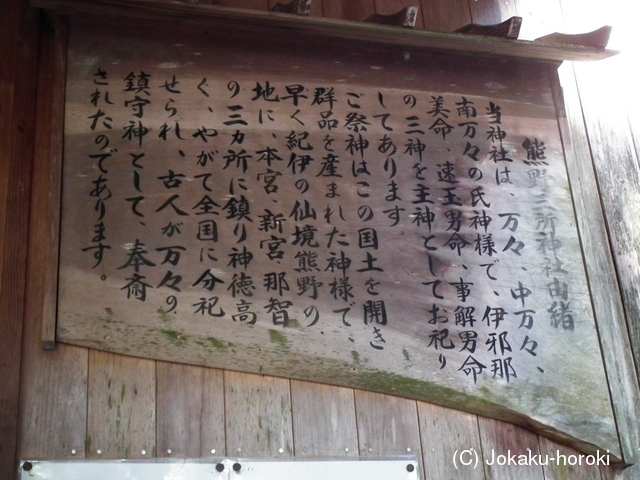 熊野三所神社由緒
当神社は、万々、中万々、
南万々の氏神様で、伊邪那
美命、速玉男命、事解男命
の三神を主神としてお祀り
してあります
ご祭神はこの国土を開き
群品を産まれた神様で、
早く紀伊の仙境熊野の
地に、本宮、新宮、那智
の三カ所に鎮り神徳高
く、やがて全国に分祀
せられ、古人が万々の
鎮守神として、奉斎
されたのであります。
(C) Jokaku-horoki